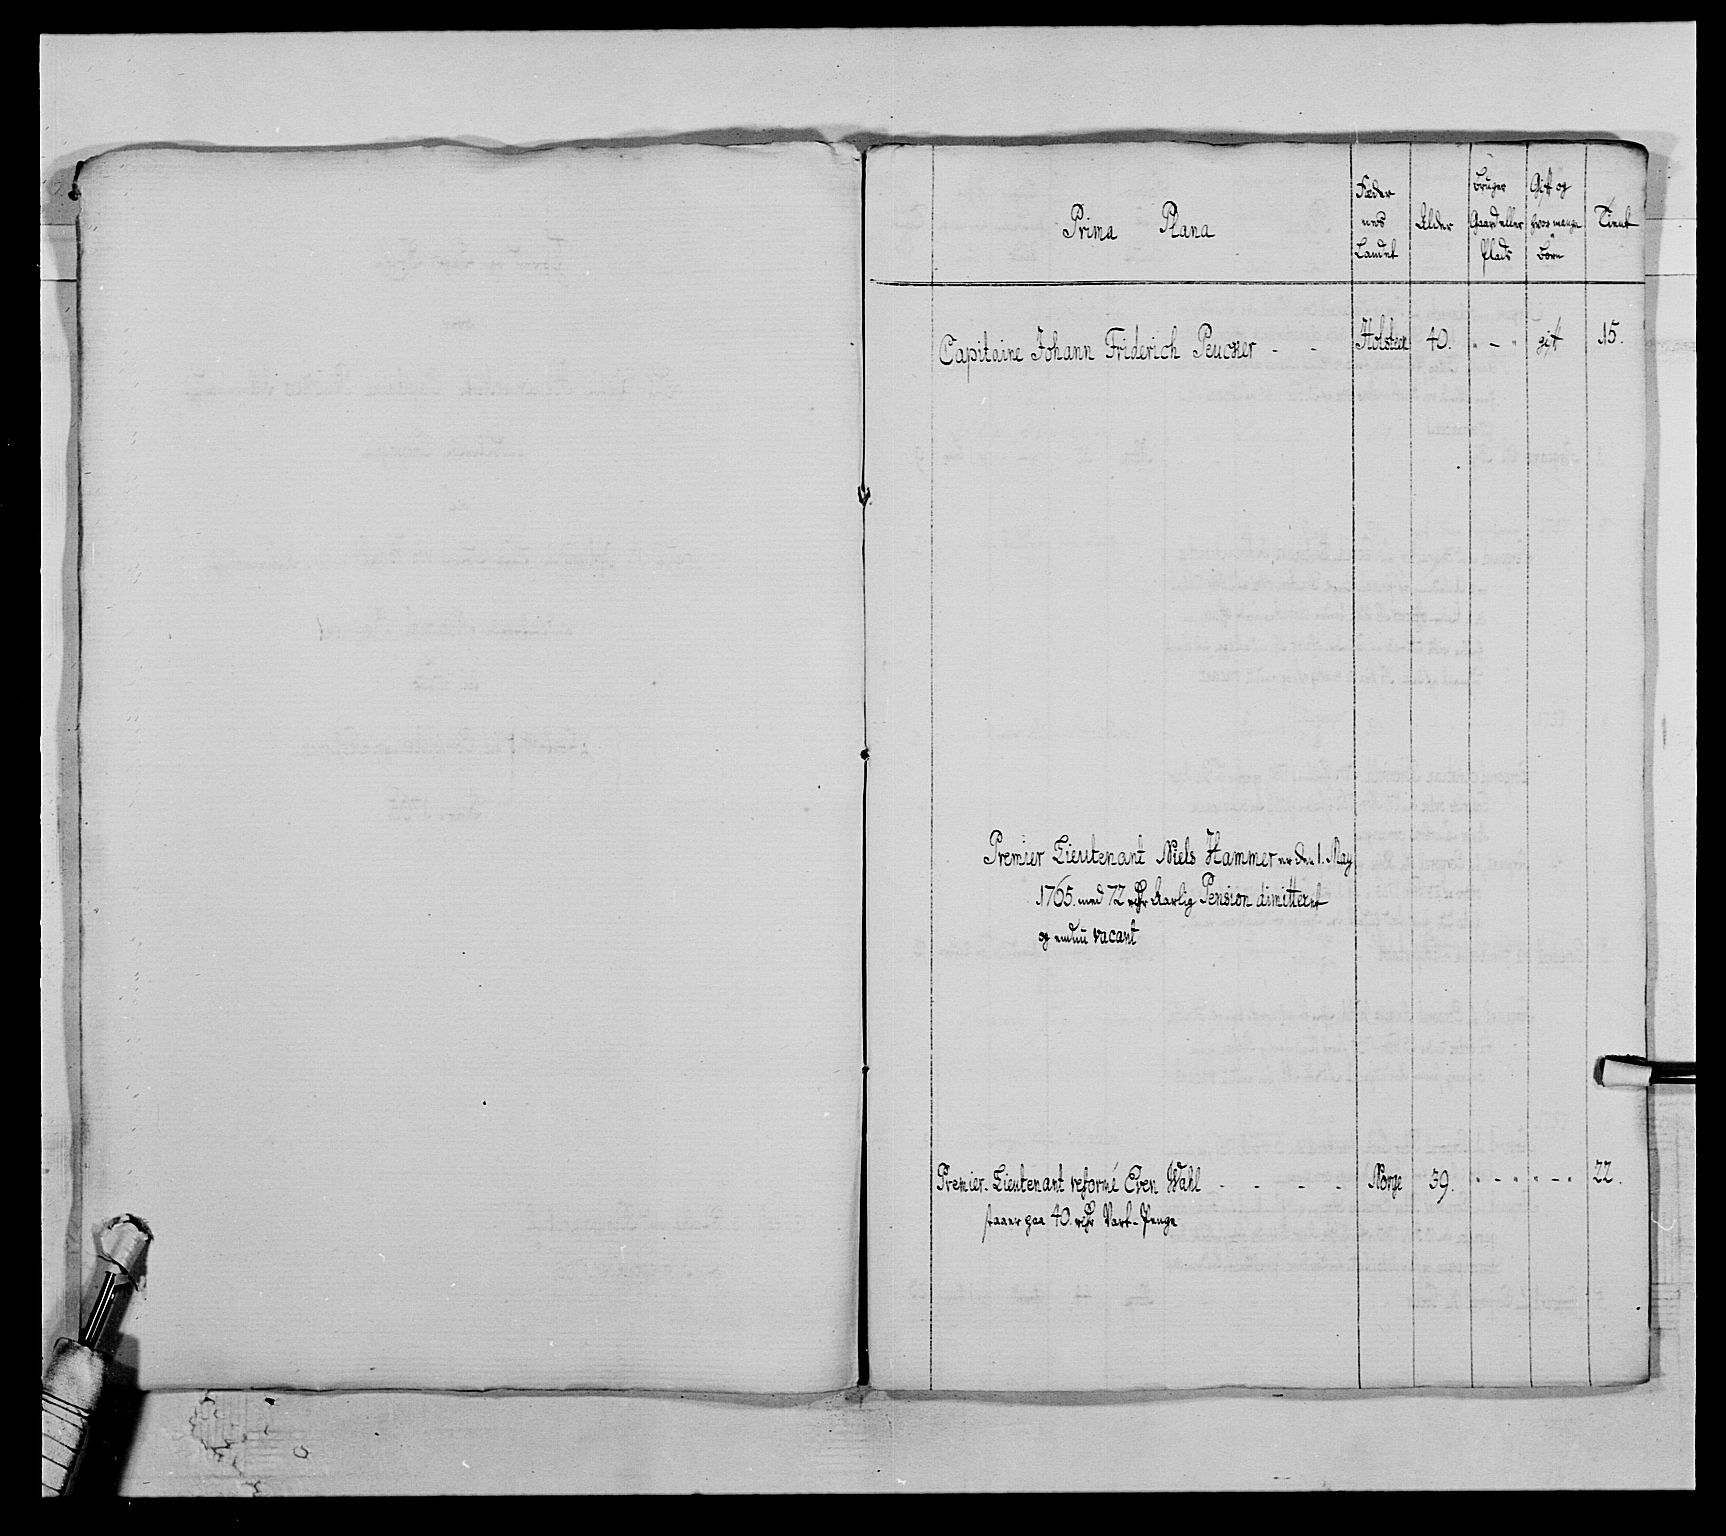 Prima Plana
Fæder
nes
Landet
Alder
Bruger
Gaard eller
Plads
Gift og
hvor mange
Børn
Tient
Capitaine Johann Friderich Peucker - - Holsteen 40. " - " gift 15.
Premier Lieutenant Niels Hammer er den 1. May
1765. med 72 rdr Aarlig Pension dimitteret
og endnu vacant
Premier-Lieutenant reformé Even Wahl - - - - Norge 39. " - " " - " 22.
staaer paa 40. rdr Vart-Penge